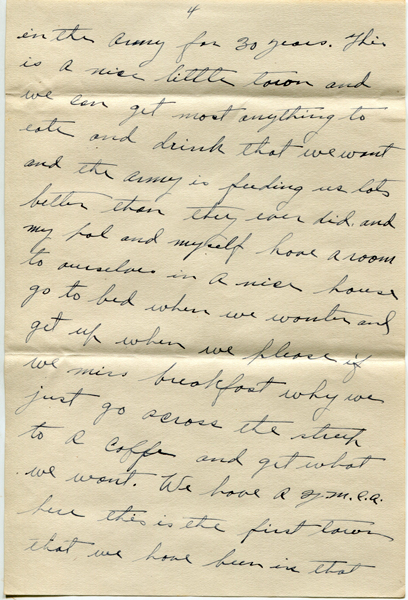 4
in the army for 30 years. This
is a nice little town and
we can get most anything to
eate and drink that we want
and the army is feeding us lots
better than they ever did. and
my pal and myself have a room
to ourselves in a nice house
go to bed when we wonter and
get up when we please if
we miss breakfast why we
just go across the streep
to a coffe and get what
we want. We have a y.m.c.a.
here this is the first town
that we have been in that